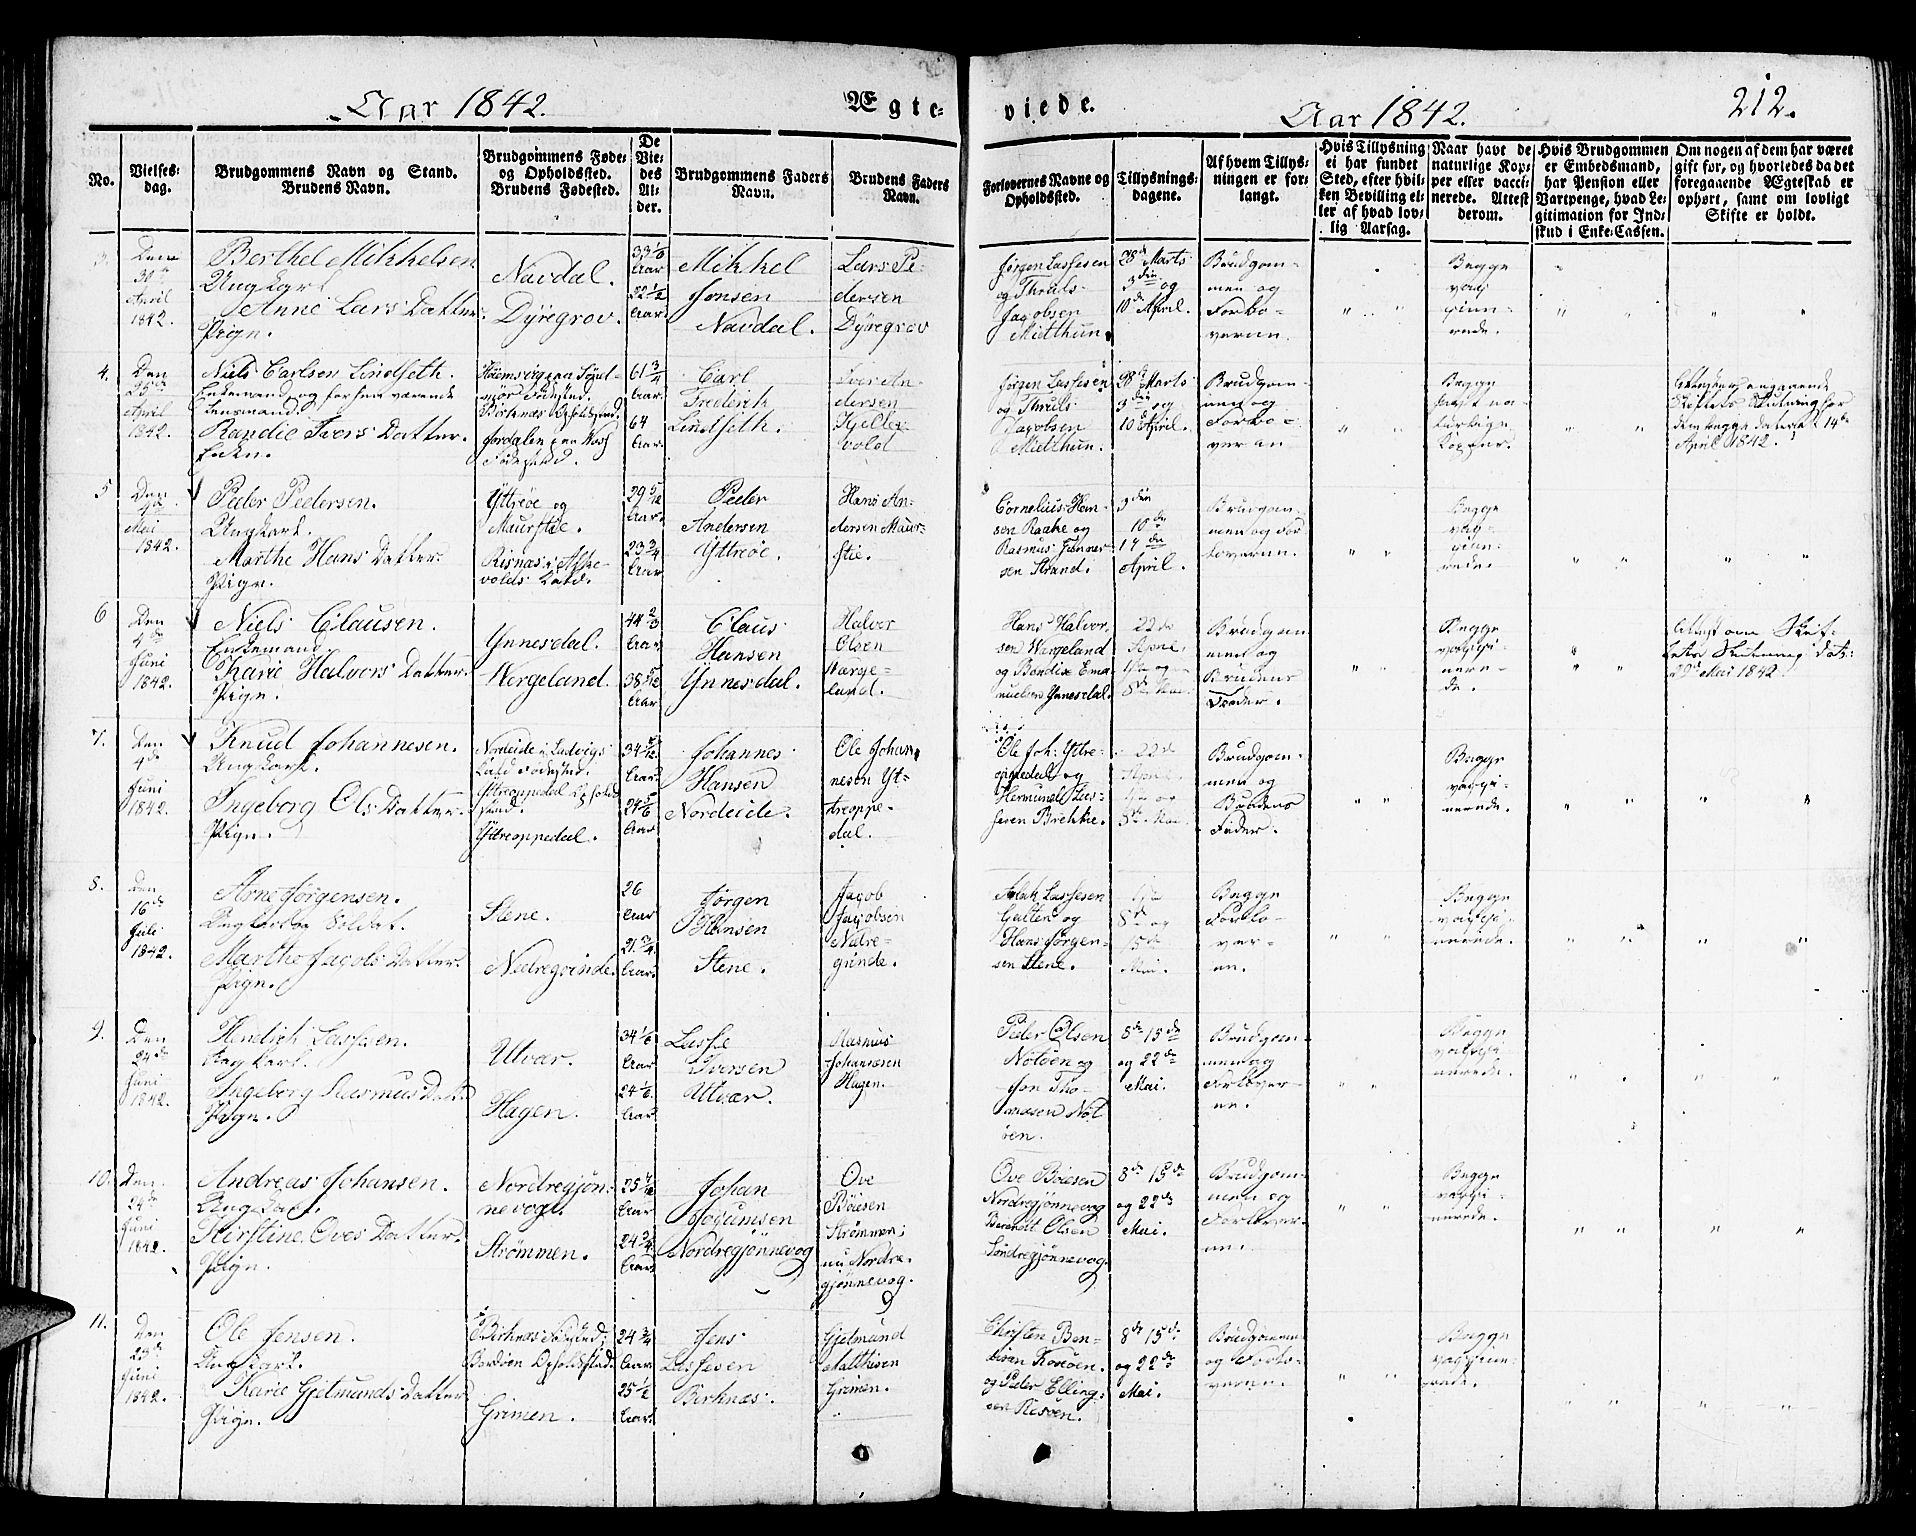 Aar 1842.
Ægte-
viede.
Aar 1842.
212.
No.
Vielses-
dag.
Brudgommens Navn og Stand.
Brudens Navn.
Brudgommens Føde-
og Opholdssted.
Brudens Fødested.
De
Vie-
des
Al-
der.
Brudgommens Faders
Navn.
Brudens Faders
Navn.
Forlovernes Navne og
Opholdssted.
Tillysnings-
dagene.
Af hvem Tillys-
ningen er for-
langt.
Hvis Tillysning
ei har fundet
Sted, efter hvil-
ken Bevilling el-
ler af hvad lov-
lig Aarsag.
Naar havt de
naturlige Kop-
per eller vacci-
nerede. Attest
derom.
Hvis Brudgommen
er Embedsmand,
har Pension eller
Vartpenge, hvad Le-
gitimation for Ind-
skud i Enke-Cassen.
Om nogen af dem har været
gift før, og hvorledes da det
foregaaende Ægteskab er
ophørt, samt om lovligt
Skifte er holdt.
3.
Den
30te
April
1842.
Berthel Mikkelsen
Ungkarl
Anne Lars Datter.
Pige.
Navdal.
Dyregrov.
33 1/6
Aar
22 1/2
Aar.
Mikkel
Jonsen
Navdal.
Lars Pe-
dersen
Dyregrov
Jørgen Lassesen
og Thruls
Jacobsen
Mielthun.
28de Marts
3die og
10de April.
Brudgom-
men og
Forlo-
verne.
Begge
vac-
cinn-
erede.
4.
Den
25de
April
1842.
Niels Carlsen Lindseth.
Enkemand og forhen værende
Lensmand.
Randie Ivers Datter.
Enke.
Fødested.
Birknæs Opholdssted.
Jordalen paa Voss
Fødested.
61 3/4
Aar.
64
Aar.
Carl
Frederik
Lindseth.
Iver An-
dersen
Hielle-
vold
Jørgen Lassesen
og Thruls
Jacobsen
Mielthun.
28de Marts
3die og
10de April.
Brudgom-
men og
Forlo-
verne
Begge
havt na-
turlige
Kopper.
Attester angaaende
Skiftets Slutning for
dem begge daterede 14de
April 1842.
5
Den
Mai
1842.
Peder Pedersen.
Ungkarl.
Marthe Hans Datter.
Pige.
Yttrøe og
Maurstie.
Risnæs i Aske-
volds Sogn.
29 5/12
Aar.
23 3/4
Aar.
Peder
Andersen
Yttrøe.
Hans An-
dersen Maur-
stie.
Cornelius Hen-
sen Raahe og
Rasmus Johannes-
sen Strand.
3die
10de
17de
April.
Brudgom-
men og For-
loverne.
Begge
vac-
cinn-
erede.
6
Den
4de
Juni
1842.
Niels Clausen.
Enkemand
Karie Halvors Datter.
Pige.
Ynnesdal.
Wergeland.
44 2/3
Aar.
38 5/12
Aar
Claus
Hansen
Ynnesdal.
Halver
Olsen
Værge-
land.
Hans Halvor-
sen Wergeland
og Bendix Ema-
nuelsen Ynnesdal.
22de
April,
1ste og
8de Mai.
Brudgom
men og
Brudens
Fader.
Begge
vacci-
nere-
de.
Attest om Skif-
tets Slutning dat:
29de Mai 1842.
7.
Den
4de
Juni
1842.
Knud Johannesen.
Ungkarl.
Ingeborg Ols Datter.
Pige.
Nordeide i Ladvigs
Sogn Fødested.
Yttreoppedal Ophold-
sted.
Yttreoppedal.
34 5/12
Aar
24 5/6
Aar
Johannes
Hansen
Nordeide.
Ole Johan-
nesen Yt-
treoppe-
dal.
Ole Joh: Yttre-
oppedal og
Hermund Las-
sesen Brekke.
22de
April.
1ste og
8de Mai.
Brudgom-
men og
Brudens
Fader.
Begge
vacci-
nerede.
8.
Den
16de
Juli
1842.
Arne Jørgensen.
Ungkarl og Soldat.
Marthe Jacobs Datter.
Pige.
Stene.
Nedregrinde.
26
Aar
21 3/4
Aar.
Jørgen
Hansen
Stene.
Jacob
Jacobsen
Nedre-
grinde.
Lassesen
Galten og
Hans Jørgen-
sen Stene.
1ste
8de og
15de
Mai.
Begge
Forlo-
ver-
ne.
Begge
vacci-
nerede.
9.
Den
24de
Juni
1842.
Hendrich Lassesen.
Ungkarl.
Ingeborg Rasmus Dat.
Pige.
Utvær.
Hagen.
34 1/6
Aar
24 1/6
Aar
Lasse
Iversen
Utvær.
Rasmus
Johannesen
Hagen.
Peder Olsen
Notøen og
Jon Tho-
massen Not
øen.
8de 15de
og 22de
Mai.
Brudgom-
men og
Forlover-
ne.
Begge
vacci-
nerede.
10.
Den
24de
Juni
1842.
Andreas Johansen.
Ungkarl.
Kirstine Oves Datter.
Pige.
Nordregjøn-
nevog.
Strømmen.
25 4/12
Aar
24 3/4
Aar.
Johan
Jocumsen
Nordregjønnevog
Ove
Bøiesen
Strømmen;
nu Nordre-
gjønnevog.
Ove Boiesen
Nordregjønnevog
Berendt Olsen
Søndregjønnevog
8de 15de
og 22de
Mai.
Brudgom-
men og
Forlover-
ne.
Begge
vacci-
nerede.
11.
Den
23de
Juni
1842.
Ole Jensen.
Ungkarl.
Karie Gjetmunds Datter
Pige.
Birknæs Fødested;
Bordøen Opholdssted.
Grimen.
24 3/4
Aar
25 1/2
Aar.
Jens
Lassesen
Birknæs.
Gjetmund
Matthisen
Grimen.
Christen Ben-
sen Korsøen.
og Peder Elling-
sen Risøen.
8de 15de
og 22de
Mai.
Brudgommen
og Forlo-
verne.
Begge
vaccine-
rede.